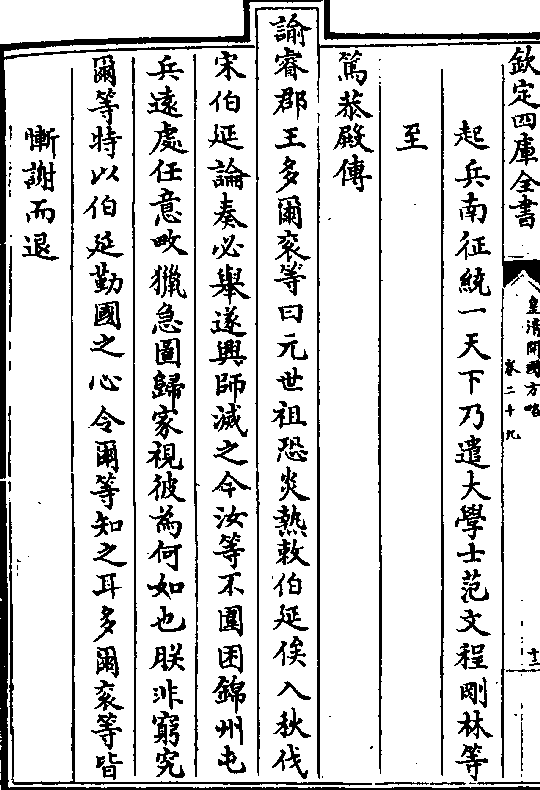 欽定四庫全書
皇清開國方略
卷二十九
十三
起兵南征統一天下乃遣大學士范文程剛林等
至
篤恭殿傳
諭睿郡王多爾袞等曰元世祖恐炎熱敕伯延俟入秋伐
宋伯延論奏必舉遂興師滅之今汝等不圍困錦州屯
兵遠處任意畋獵急圖歸家視彼為何如也朕非窮究
爾等特以伯延勤國之心令爾等知之耳多爾袞等皆
慚謝而退